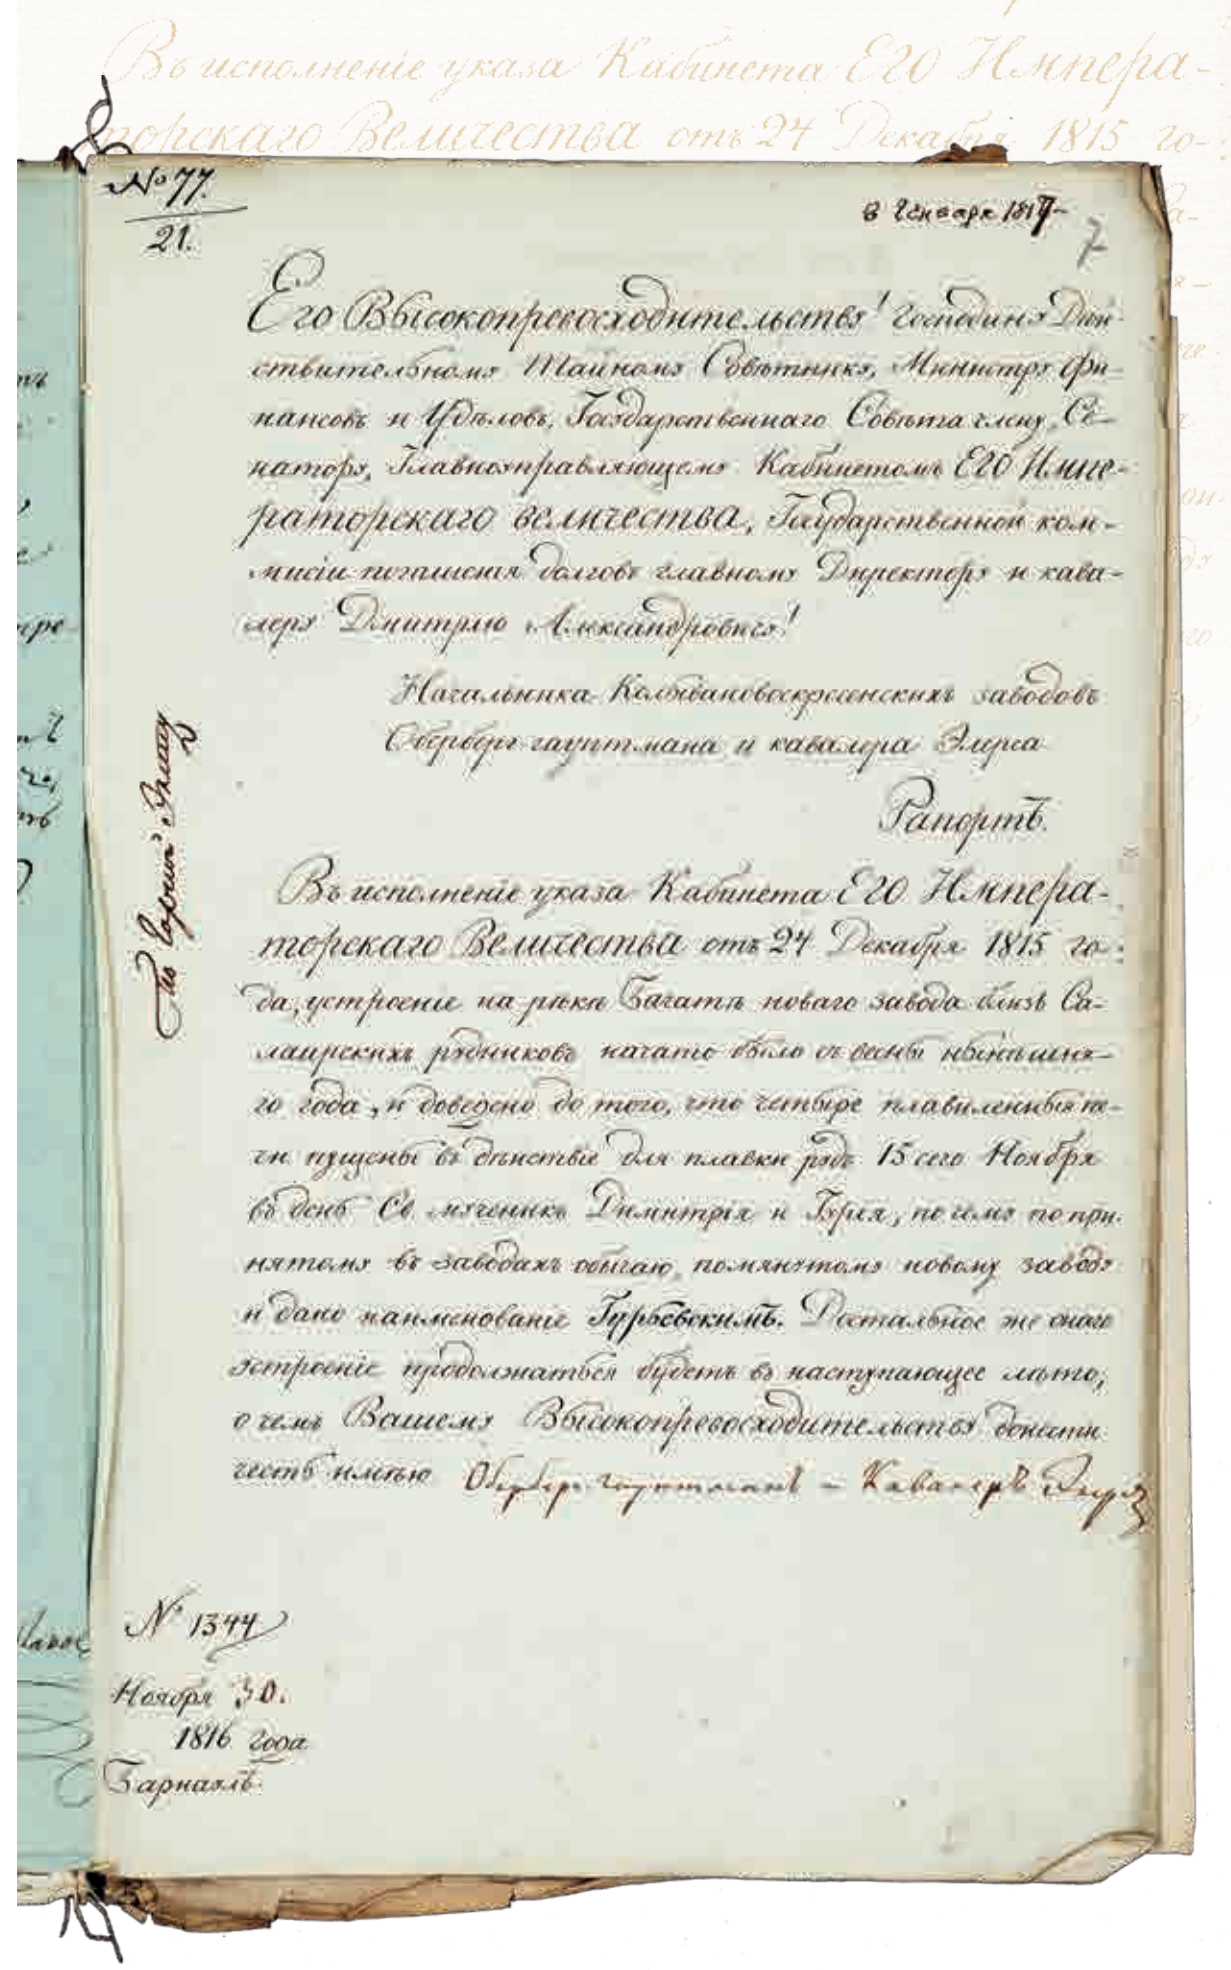 Въ исполненіе указа Кабинета Его Импера-
торскаго Величества отъ 24 Декабря 1815 го-
№ 77.
21.
8 Генваря 1817
7
Его Высокопревосходительству! Господину Дѣй-
ствительному Тайному Совѣтнику, Министру Фи-
нансовъ и Удѣловъ, Государственнаго Совѣта члену, Се-
натору, Главноуправляющему Кабинетомъ Его Импе-
раторскаго величества, Государственной ком-
мисіи погашенія долговъ главному Директору и кава-
леру Дмитрію Александровичу!
Начальника Колывановоскресенскихъ заводовъ
Обербергъ-гауптмана и кавалера Элерса
Рапортъ.
По Горной Экспед
Въ исполненіе указа Кабинета Его Импера-
торскаго Величества отъ 24 Декабря 1815 го-
да, устроеніе на рѣкѣ Бачатѣ новаго завода близь Са-
лаирскихъ рудниковъ начато было съ весны нынѣшня-
го года, и доведено до того, что четыре плавиленныя пе-
чи пущены въ дѣйствіе для плавки рудъ 15 сего Ноября
въ день Св. мучениковъ Димитрія и Гурія, по чему по при-
нятому въ заводахъ обычаю, помянутому новому заводу
и дано наименованіе Гурьевскимъ. Достальное же онаго
устроеніе продолжаться будетъ въ наступающее лѣто,
о чемъ Вашему Высокопревосходительству донести
честь имѣю Обербергъ-гауптманъ и Кавалеръ Элерсъ
№ 1344
Ноября 30.
1816 года
Барнаулъ.